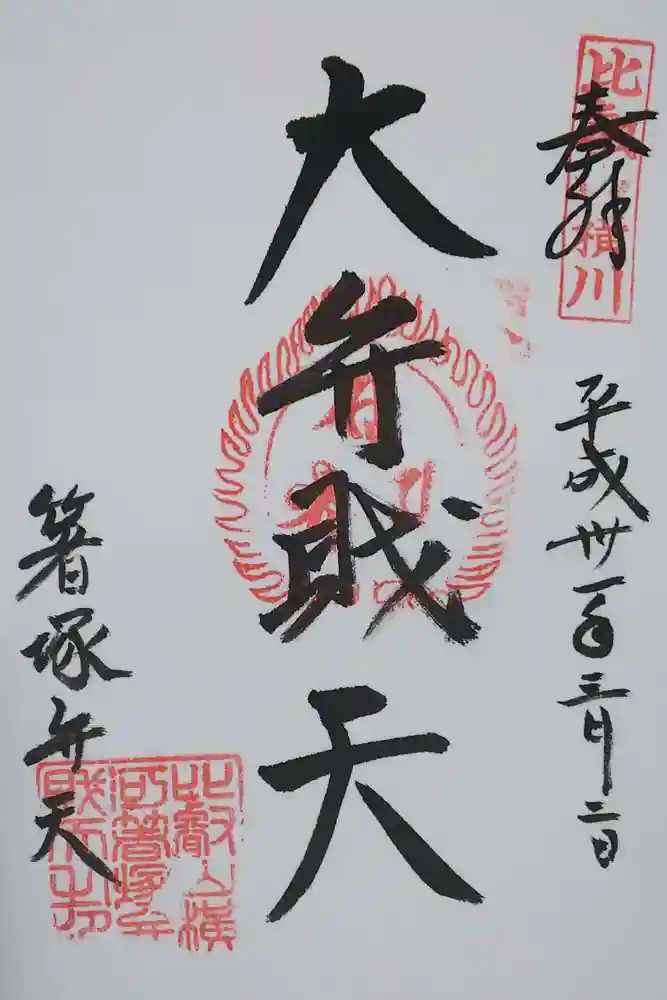 比叡
横川
奉拝
平成卅一年三月二日
大弁財天
箸塚弁天
比叡山横
河箸塚弁